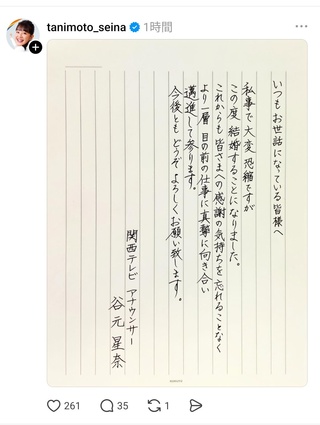 tanimoto_seina 1時間
いつもお世話になっている皆様へ
私事で大変恐縮ですが
この度 結婚することになりました。
これからも皆さまへの感謝の気持ちを忘れることなく
より一層 目の前の仕事に真摯に向き合い
邁進して参ります。
今後とも どうぞ よろしくお願い致します。
関西テレビ アナウンサー
谷元 星奈
261 35 1